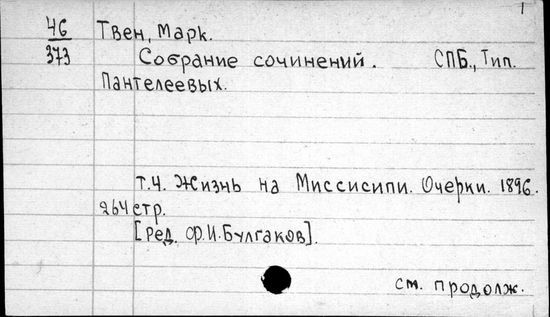 1
46 Твен, Марк.
373 Собрание сочинений. СПБ., Тип.
Пантелеевых.
т.4. Жизнь на Миссисипи. Очерки. 1896.
264 стр.
[Ред. Ф.И.Булгаков].
см. продолж.